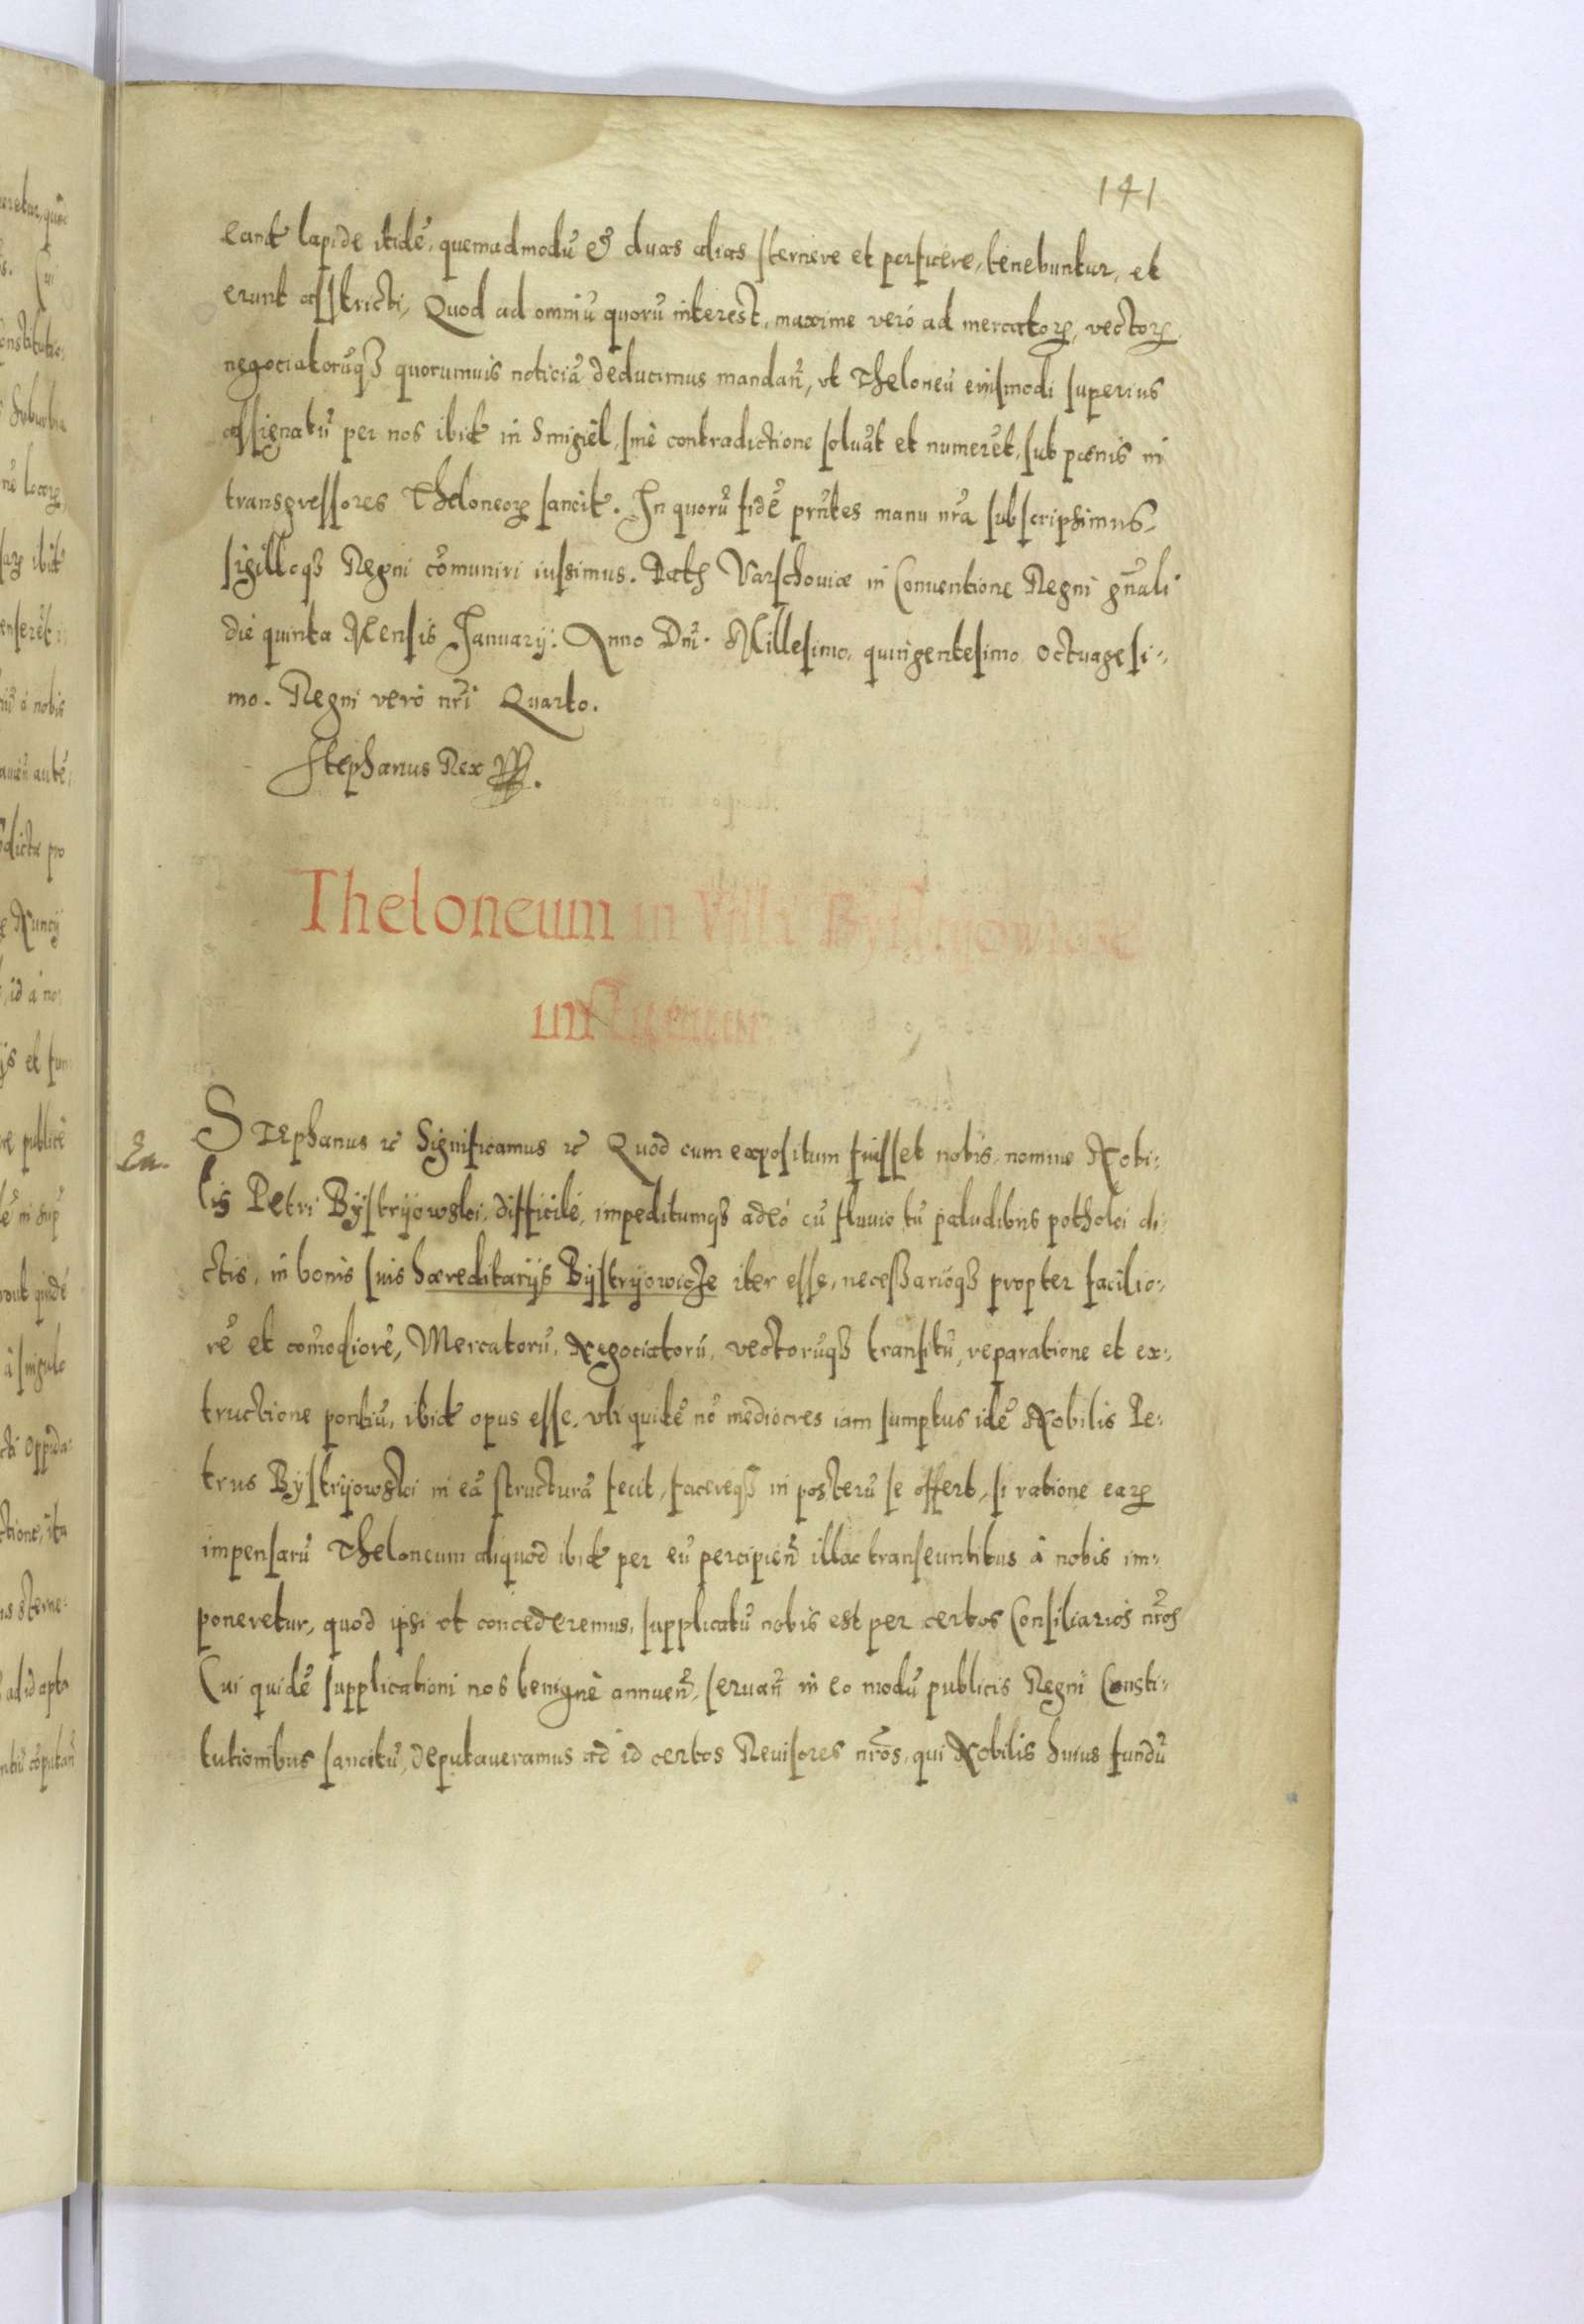 141
eant lapide itidē, quemadmodū & duas alias sternere et perficere, tenebuntur, et
erunt asstricti, Quod ad omniū quorū interest, maxime verò ad mercatorꝝ, vectorꝝ
negociatorūqꝫ quorumuis noticiā deducimus mandan̄, vt Theloneū eiusmodi superius
assignatū per nos ibid in Smigiel, sinè contradictione soluāt et numerēt, sub poenis in
transgressores Theloneorꝝ sancit. In quorū fidē prñtes manu nr̄a subscripsimus,
sigilloqꝫ Regni cōmuniri iussimus. Datꝭ Varschouiæ in Conuentione Regni gñali
die quinta Mensis Januarij. Anno Dnī. Millesimo, quingentesimo octuagesi-
mo. Regni verò nr̄i Quarto.
Stephanus Rex
Theloneum in Villa Bystrijowicze
Ea.
STephanus ꝛc Significamus ꝛc Quòd cum expositum fuisset nobis, nomine Nobi-
lis Petri Bÿstrijowski, difficile, impeditumqꝫ adeò cū fluuio tū paludibus potholci di-
ctis, in bonis suis hæreditarijs Bÿstrijowicze iter esse, necessarióqꝫ propter facilio-
rē et comodiorē, Mercatorū, Negociatorū, vectorūqꝫ transitū, reparatione et ex-
tructione pontiū, ibid opus esse. vti quidē nō mediocres iam sumptus idē Nobilis Pe-
trus Bÿstrijowski in eā structurā fecit, facereqꝫ in posterū se offert, si ratione earꝝ
impensarū Theloneum aliquod ibid per eū percipien̄ illac transeuntibus à nobis im-
poneretur, quod ipsi vt concederemus, supplicatū nobis est per certos Consiliarios nr̄os
Cui quidē supplicationi nos benignè annuen̄, seruan̄ in eo modū publicis Regni Consti-
tutionibus sancitū, deputaueramus ad id certos Reuisores nr̄os, qui Nobilis huius fundū